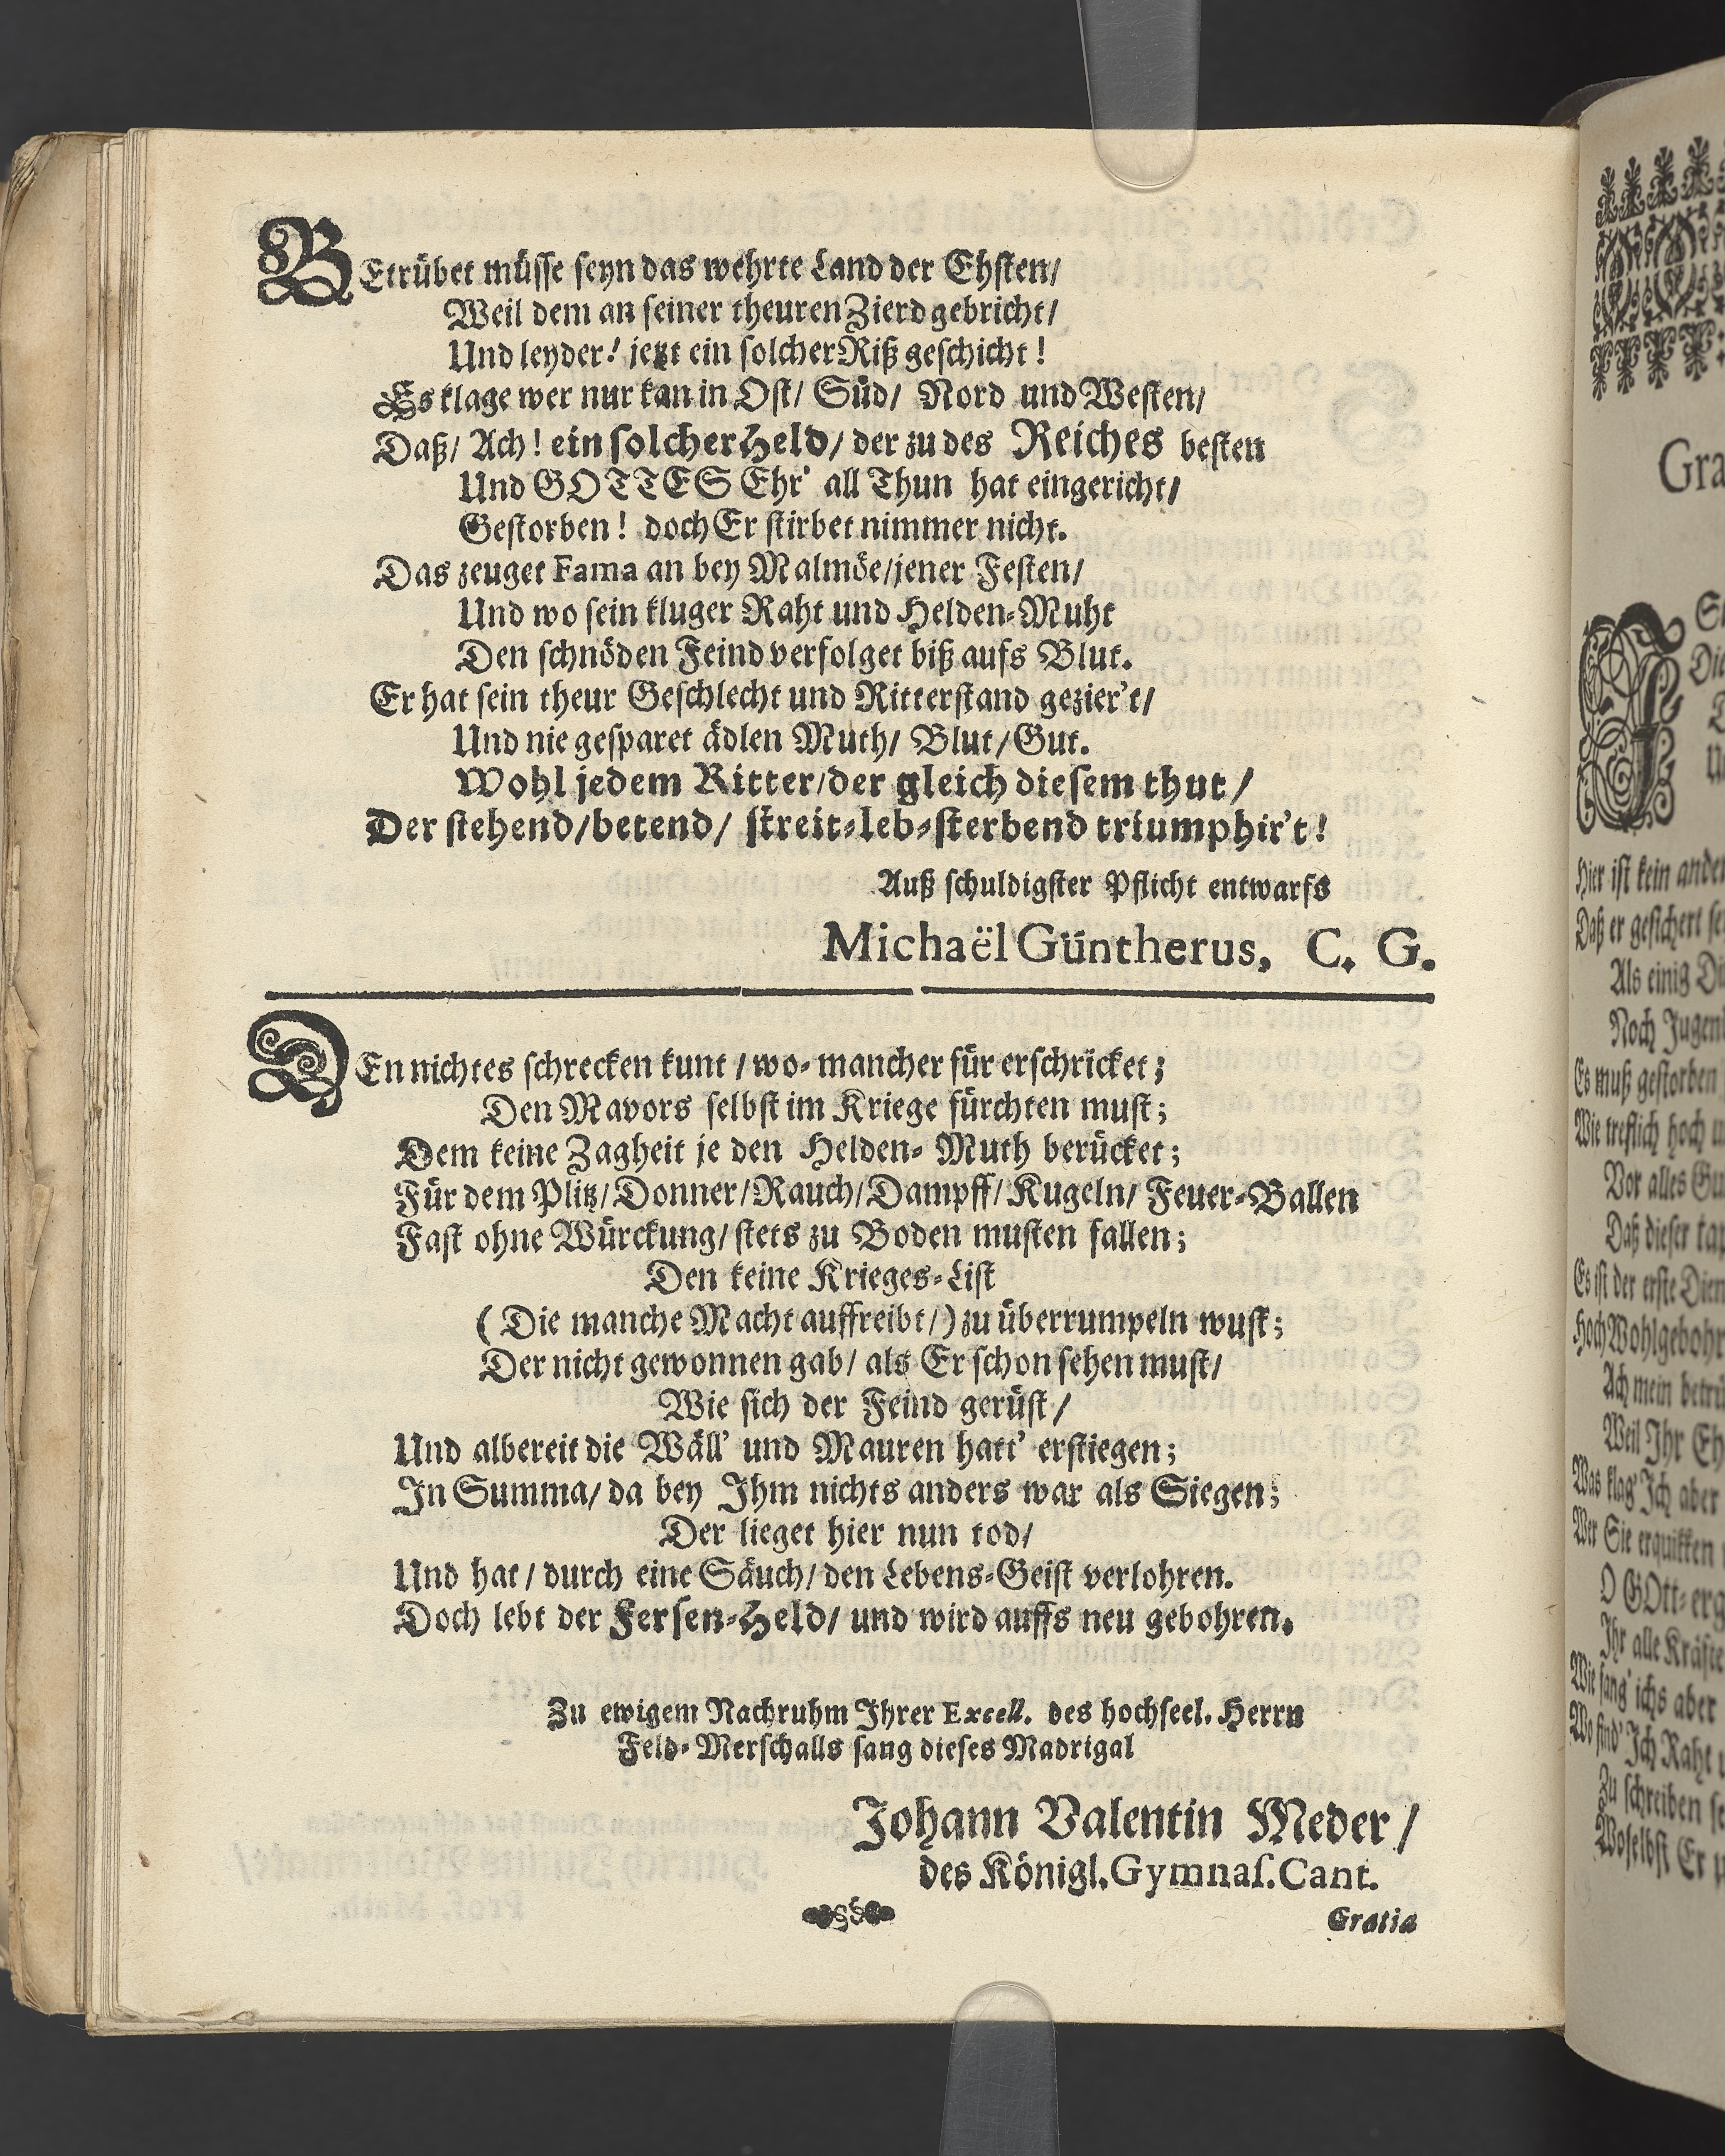 BEtrübet müsse seyn das wehrte Land der Ehsten/
Weil dem an seiner theuren Zierd gebricht/
Und leyder! jetzt ein solcher Riß geschicht!
Es klage wer nur kan in Ost/ Süd/ Nord und Westen/
Daß/ Ach! ein solcher Held/ der zu des Reiches besten
Und GOTTES Ehr' all Thun hat eingericht/
Gestorben! doch Er stirbet nimmer nicht.
Das zeuget Fama an bey Malmöe/jener Festen/
Und wo sein kluger Raht und Helden-Muht
Den schnöden Feind verfolget biß aufs Blut.
Er hat sein theur Geschlecht und Ritterstand gezier't/
Und nie gesparet ädlen Muth/ Blut/Gut.
Wohl jedem Ritter/der gleich diesem thut/
Der stehend/betend/ streit-leb-sterbend triumphir't!
Auß schuldigster Pflicht entwarfs
Michaël Güntherus, C. G.
DEn nichtes schrecken kunt / wo-mancher für erschricket;
Den Mavors selbst im Kriege fürchten must;
Dem keine Zagheit je den Helden-Muth berücket;
Für dem Plitz/Donner/Rauch/Dampff/Kugeln/ Feuer-Ballen
Fast ohne Würckung/ stets zu Boden musten fallen;
Den keine Krieges-List
(Die manche Macht auffreibt/) zu überrumpeln wust;
Der nicht gewonnen gab/ als Er schon sehen must/
Wie sich der Feind gerüst/
Und albereit die Wäll' und Mauren hatt' erstiegen;
In Summa/ da bey Ihm nichts anders war als Siegen;
Der lieget hier nun tod/
Und hat/ durch eine Säuch/ den Lebens-Geist verlohren.
Doch lebt der Fersen-Held/ und wird auffs neu gebohren.
Zu ewigem Nachruhm Ihrer Excell. des hochseel. Herrn
Feld-Merschalls sang dieses Madrigal
Johann Valentin Meder/
des Königl. Gymnas. Cant.
Gratia
Gra
Hier ist kein ander
Daß er gesichert se
Als einig Di
Noch Jugend
Es muß gestorben
Wie treflich hoch u
Vor alles Gu
Daß dieser tap
Es ist der erste Dien
HochWohlgebohr
Ach mein betrü
Weil Ihr Eh
Was klag' Ich aber
Wer Sie erquikken
O GOtt-erg
Ihr alle Kräfte
Wie sang' ichs aber
Wo find' Ich Raht
Zu schreiben se
Woselbst Er